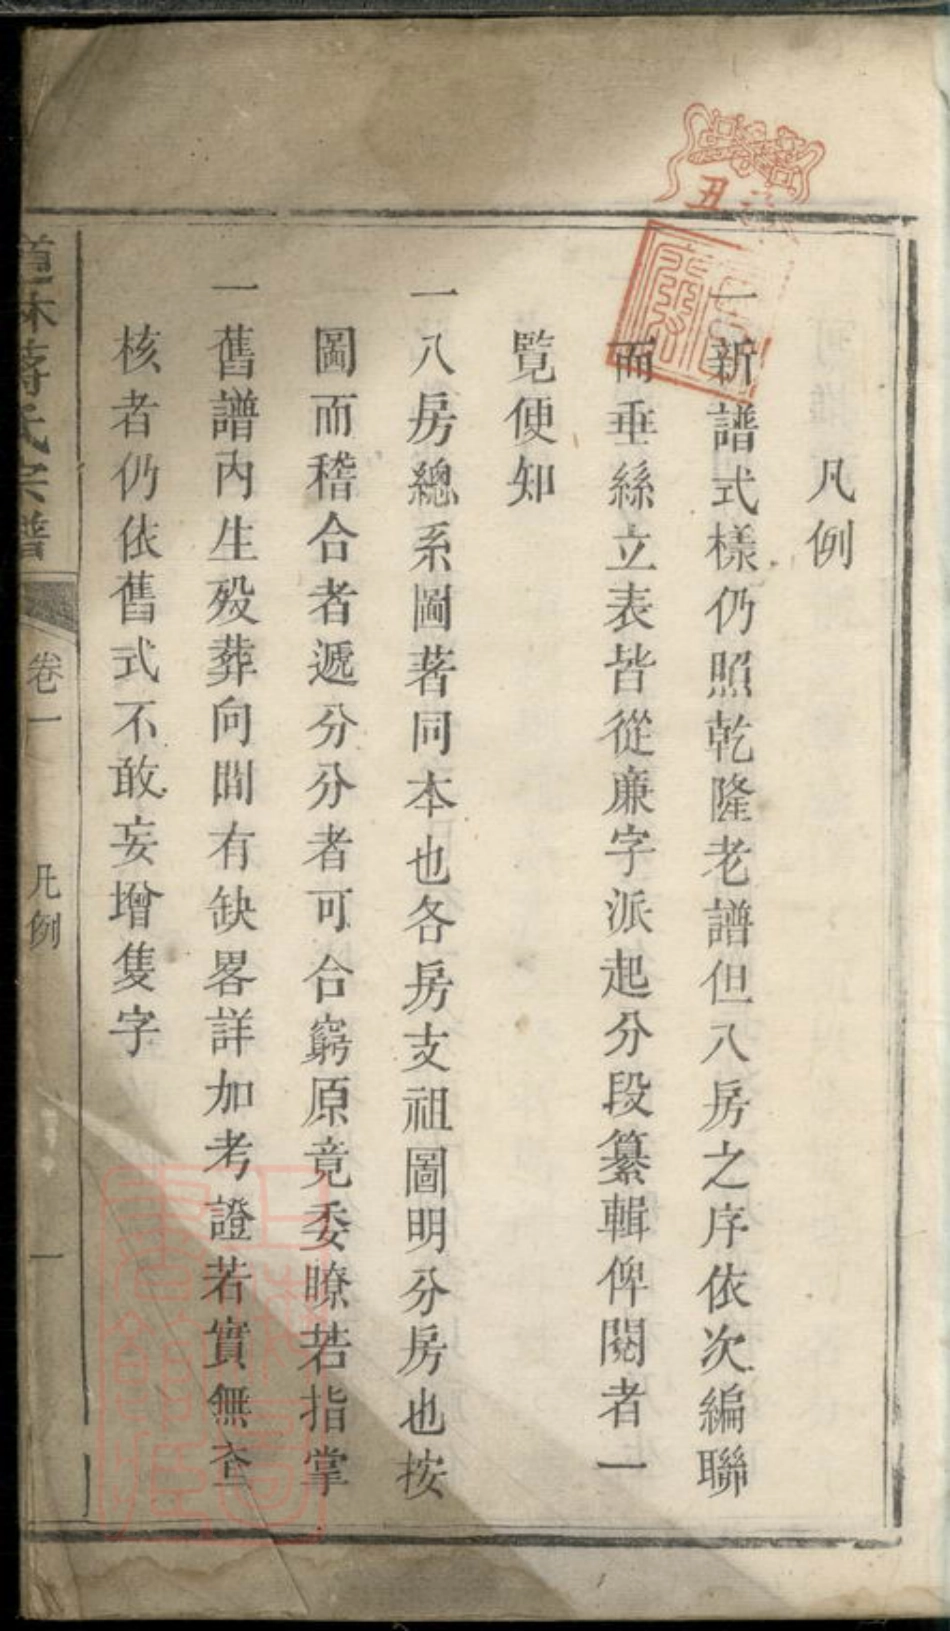 凡例
一新譜式樣仍照乾隆老譜但八房之序依次編聯
而垂絲立表皆從廉字派起分段纂輯俾閱者一
覽便知
一八房總系圖著同本也各房支祖圖明分房也按
圖而稽合者遞分分者可合窮原竟委瞭若指掌
一舊譜內生殁葬向間有缺畧詳加考證若實無查
核者仍依舊式不敢妄增隻字
蔣氏宗譜
卷一
凡例
一
丑